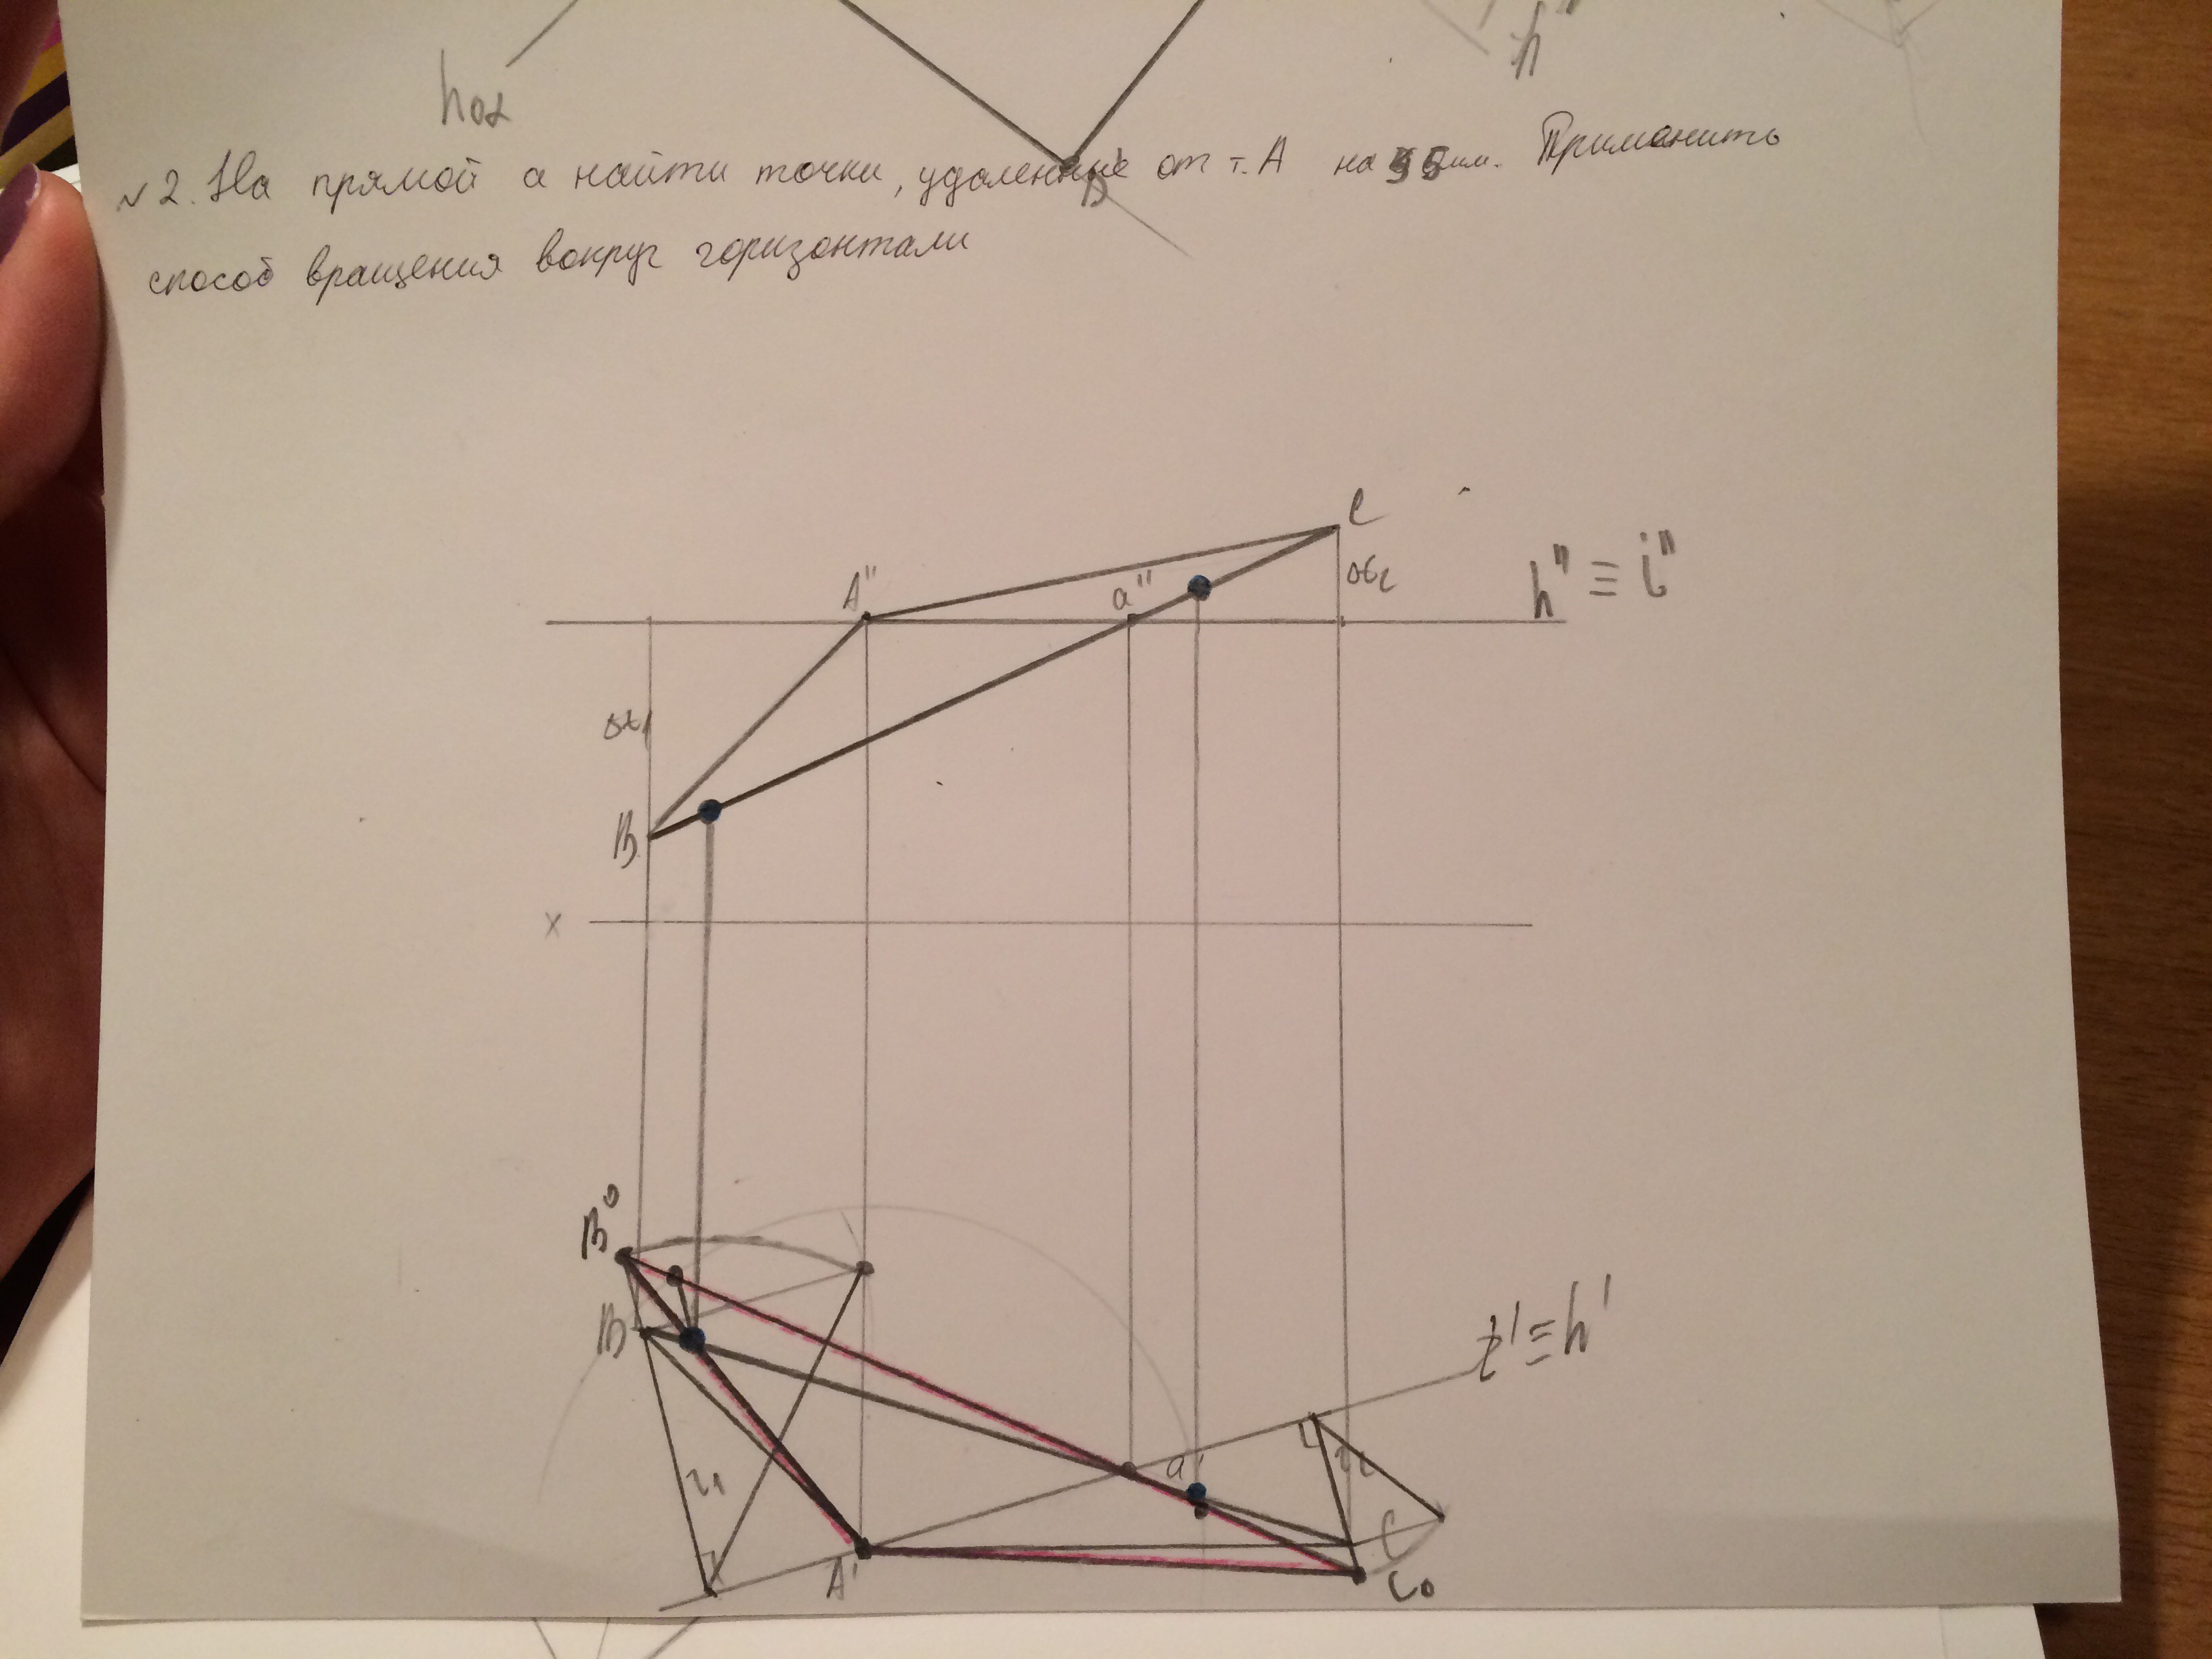 h₀α
h"
D
№2. На прямой а найти точки, удаленные от т. А на 55 мм. Применить
способ вращения вокруг горизонтали
C
A"
a"
h" ≡ i"
B
x
B⁰
B
i' ≡ h'
a'
A'
C
C₀